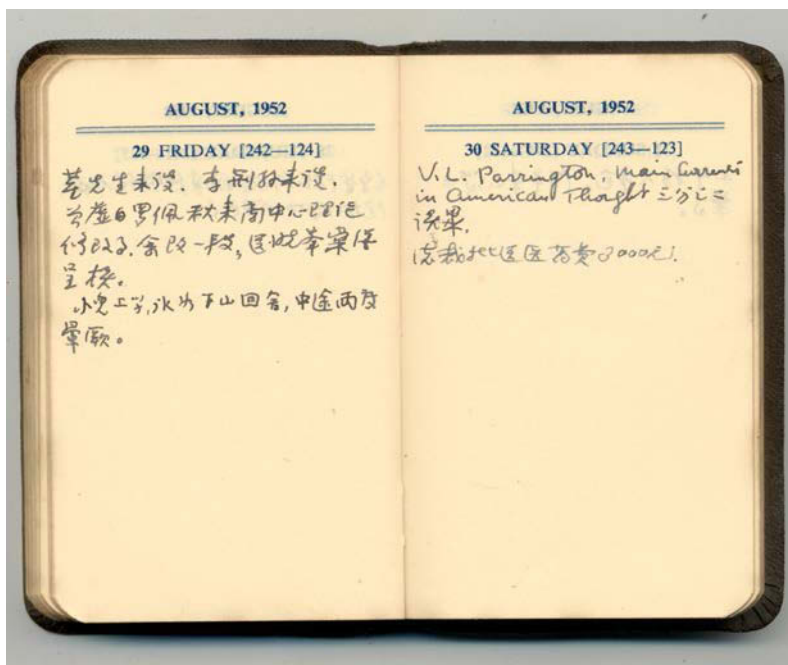 AUGUST, 1952
29 FRIDAY [242—124]
先生来谈. 李 来谈.
虚白罗佩秋来商中心理论
修改了. 余改一段, 送 本案
呈核。
小儿上学, 冰如下山回舍, 中途两度
晕厥。
AUGUST, 1952
30 SATURDAY [243—123]
V. L. Parrington. Main Currents
in American Thought 三分之二
读畢.
送医药费3000元.